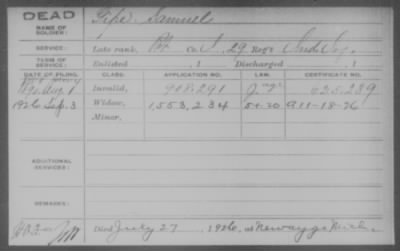 DEAD
NAME OF SOLDIER: Pipe Samuel
SERVICE: Late rank, Pt Co. I, 29 Reg't Ind. Inf.
TERM OF SERVICE: Enlisted , 1 Discharged , 1
DATE OF FILING. CLASS. APPLICATION NO. LAW. CERTIFICATE NO.
1890 Aug 1 Invalid, 908,291 625,239
1926 Sep. 3 Widow, 1,553,234 5-1-20 a 11-18-26
Minor,
ADDITIONAL SERVICES:
REMARKS:
Died July 27, 1926, at Newaygo Mich.